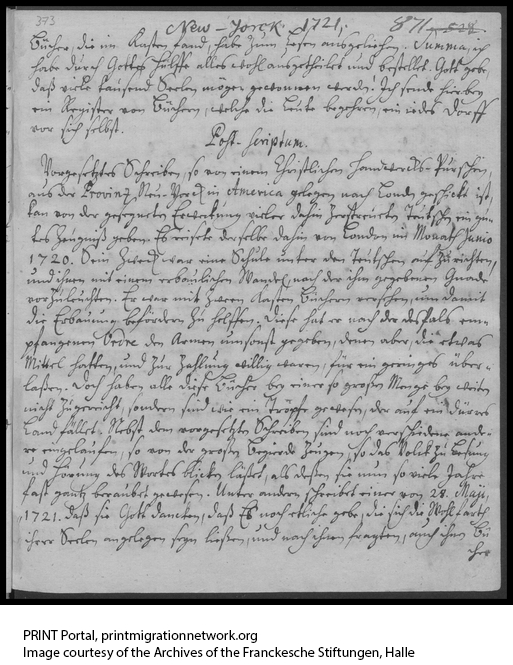 373 New-Jorck 1721. 871
Bücher, die im Kasten sand, habe zum lesen ausgeliehen. Summa, ich
habe durch Gottes Hülffe alles wohl ausgetheilet und bestellet. Gott gebe,
daß viele tausend Seelen mögen gewonnen werden! Ich sende hierbey
ein Register von Büchern, welche die Leute begehren, ein iedes Dorff
vor sich selbst.
Post-Scriptum.
Vorgesetztes Schreiben, so von einem Christlichen Handwercks-Purschen,
aus der Provinz Neu-Yorck in America gelegen nach London geschickt ist,
kan von der gesegneten Erweckung vieler dahin zerstreueten Teutschen ein gu-
tes Zeugniß geben. Es reisete derselbe dahin von London im Monath Junio
1720. Sein Zweck war eine Schule unter den Teutschen aufzurichten,
und ihnen mit einem erbaulichen Wandel, nach der ihm gegebenen Gnade
vorzuleuchten. Er war mit zween Kasten Büchern versehen, um damit
die Erbauung befördern zu helffen. Diese hat er nach der deßfals em-
pfangenen Ordre den Armen umsonst gegeben, denen aber, die etwas
Mittel hatten, und zur Zahlung willig waren, für ein geringes über-
laßen. Doch haben alle diese Bücher bey einer so großen Menge bey weiten
nicht zugereicht, sondern sind wie ein Tropfe gewesen, der auf ein dürres
Land fället. Nebst dem vorgesetzten Schreiben sind noch verschiedene ande-
re eingelauffen, so von der großen Begierde zeugen, so das Volck zu Lesung
und Hörung des Wortes blicken läßet, als deßen sie nun so viele Jahre
fast gantz beraubet gewesen. Unter andern schreibet einer von 28. Maji,
1721. daß sie Gott dancken, daß Er noch etliche gebe, die sich die Wohlfarth
ihrer Seelen angelegen seyn ließen, und nach ihnen fragten, auch ihnen Bü-
cher
PRINT Portal, printmigrationnetwork.org
Image courtesy of the Archives of the Franckesche Stiftungen, Halle